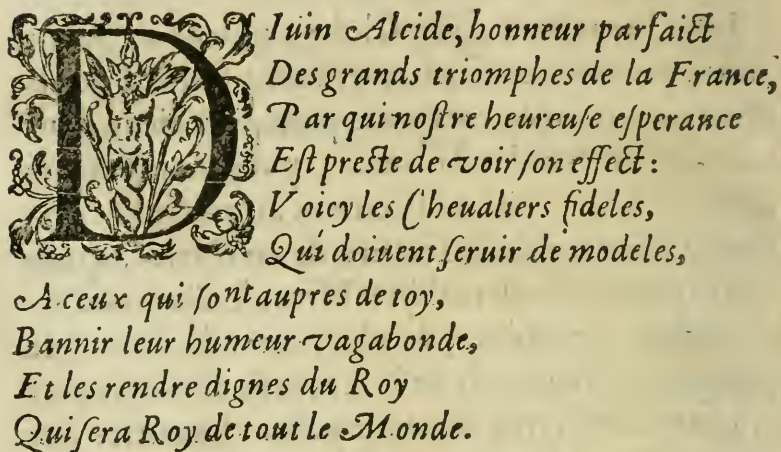 DIuin Alcide, honneur parfaict
Des grands triomphes de la France,
Par qui nostre heureuse esperance
Est preste de voir son effect:
Voicy les Cheualiers fideles,
Qui doiuent seruir de modeles,
A ceux qui sont aupres de toy,
Bannir leur humeur vagabonde,
Et les rendre dignes du Roy
Qui sera Roy de tout le Monde.